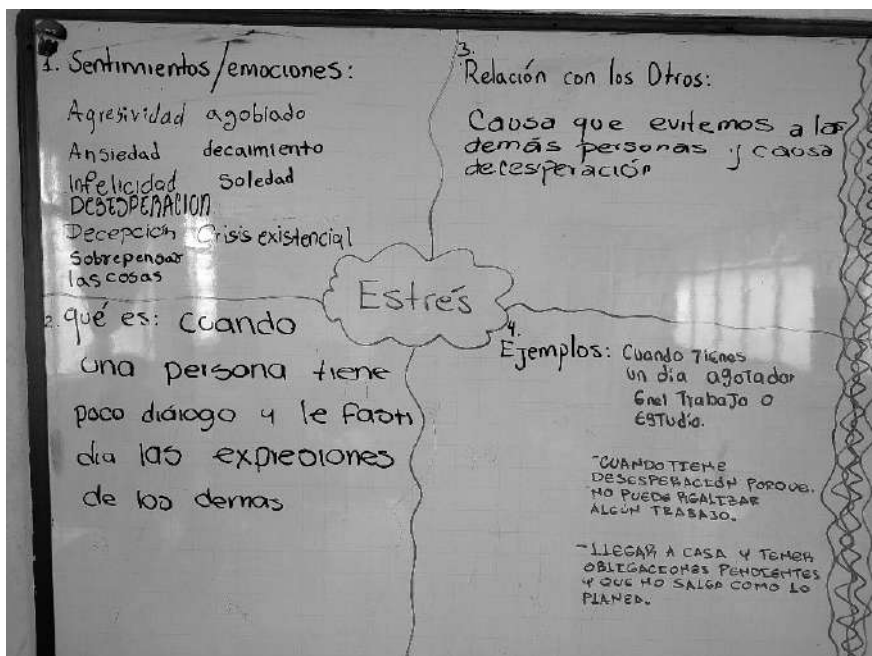 1. Sentimientos/emociones:
Agresividad agobiado
Ansiedad decaimiento
Infelicidad Soledad
DESESPERACION
Decepción Crisis existencial
Sobrepensar
las cosas
2. qué es: cuando
una persona tiene
poco diálogo y le fasti
dia las expresiones
de los demas
Estrés
3.
Relación con los Otros:
Causa que evitemos a las
demás personas y causa
decesperación
4.
Ejemplos: Cuando Tienes
un dia agotador
En el Trabajo o
Estudio.
-CUANDO TIENE
DESESPERACIÓN PORQUE.
NO PUEDE REALIZAR
ALGÚN TRABAJO.
-LLEGAR A CASA Y TENER
OBLIGACIONES PENDIENTES
Y QUE NO SALGA COMO LO
PLANEO.